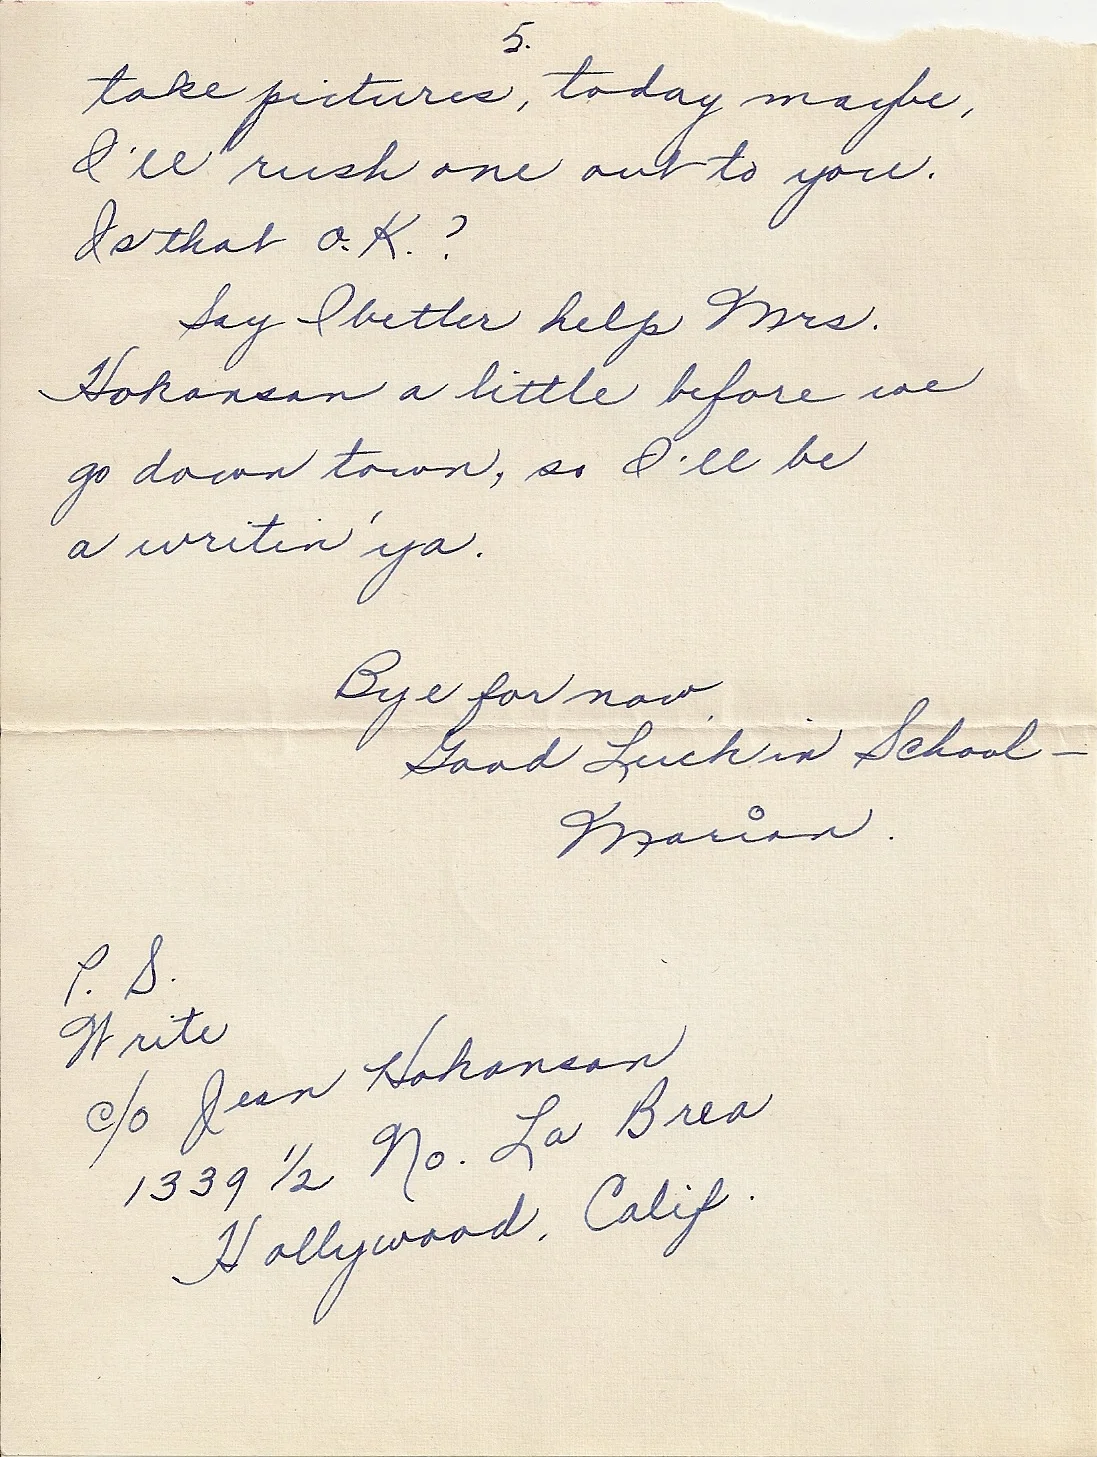 5.
take pictures, today maybe,
I'll rush one out to you.
Is that O.K.?
Say I better help Mrs.
Hokanson a little before we
go down town, so I'll be
a writin' ya.
Bye for now,
Good Luck in School—
Marian.
P. S.
Write
c/o Jean Hokanson
1339 1/2 No. La Brea
Hollywood, Calif.